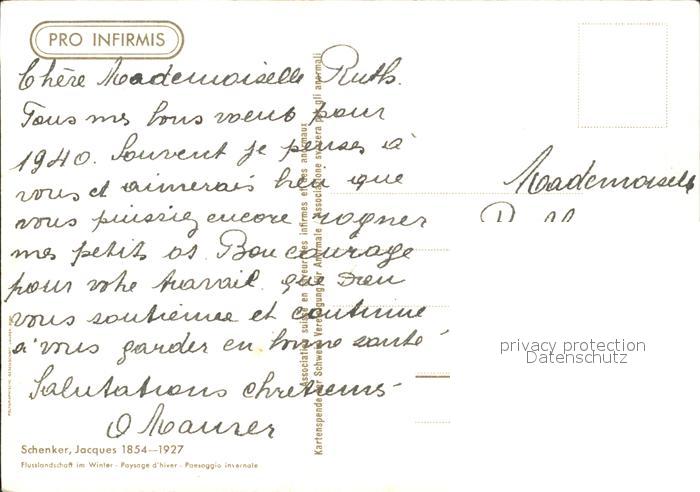 PRO INFIRMIS
Chère Mademoiselle Ruth.
Tous mes bons voeux pour
1940. Souvent je penses à
vous et aimerais bien que
vous puissiez encore rogner
mes petits os. Bon courage
pour votre travail. que Dieu
vous soutienne et continue
à vous garder en bonne santé
Salutations chrétiennes
O Maurer
Schenker, Jacques 1854—1927
Flusslandschaft im Winter - Paysage d'hiver - Paesaggio invernale
Kartenspende der Schweiz. Vereinigung für Anormale Associazione svizzera per gli anormali
Association suisse en faveur des infirmes et des anormaux
Mademoiselle
privacy protection
Datenschutz